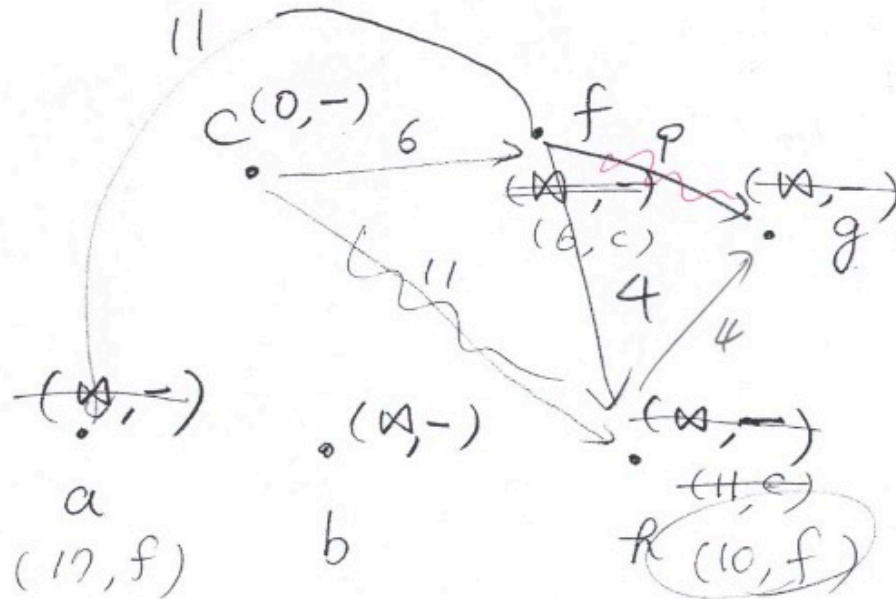 11
C (0,-)
6
f
9
(∞,-)
(6,c)
(∞,-)
g
11
4
4
(∞,-)
a
(17,f)
(∞,-)
b
(∞,-)
(11,c)
h
(10,f)